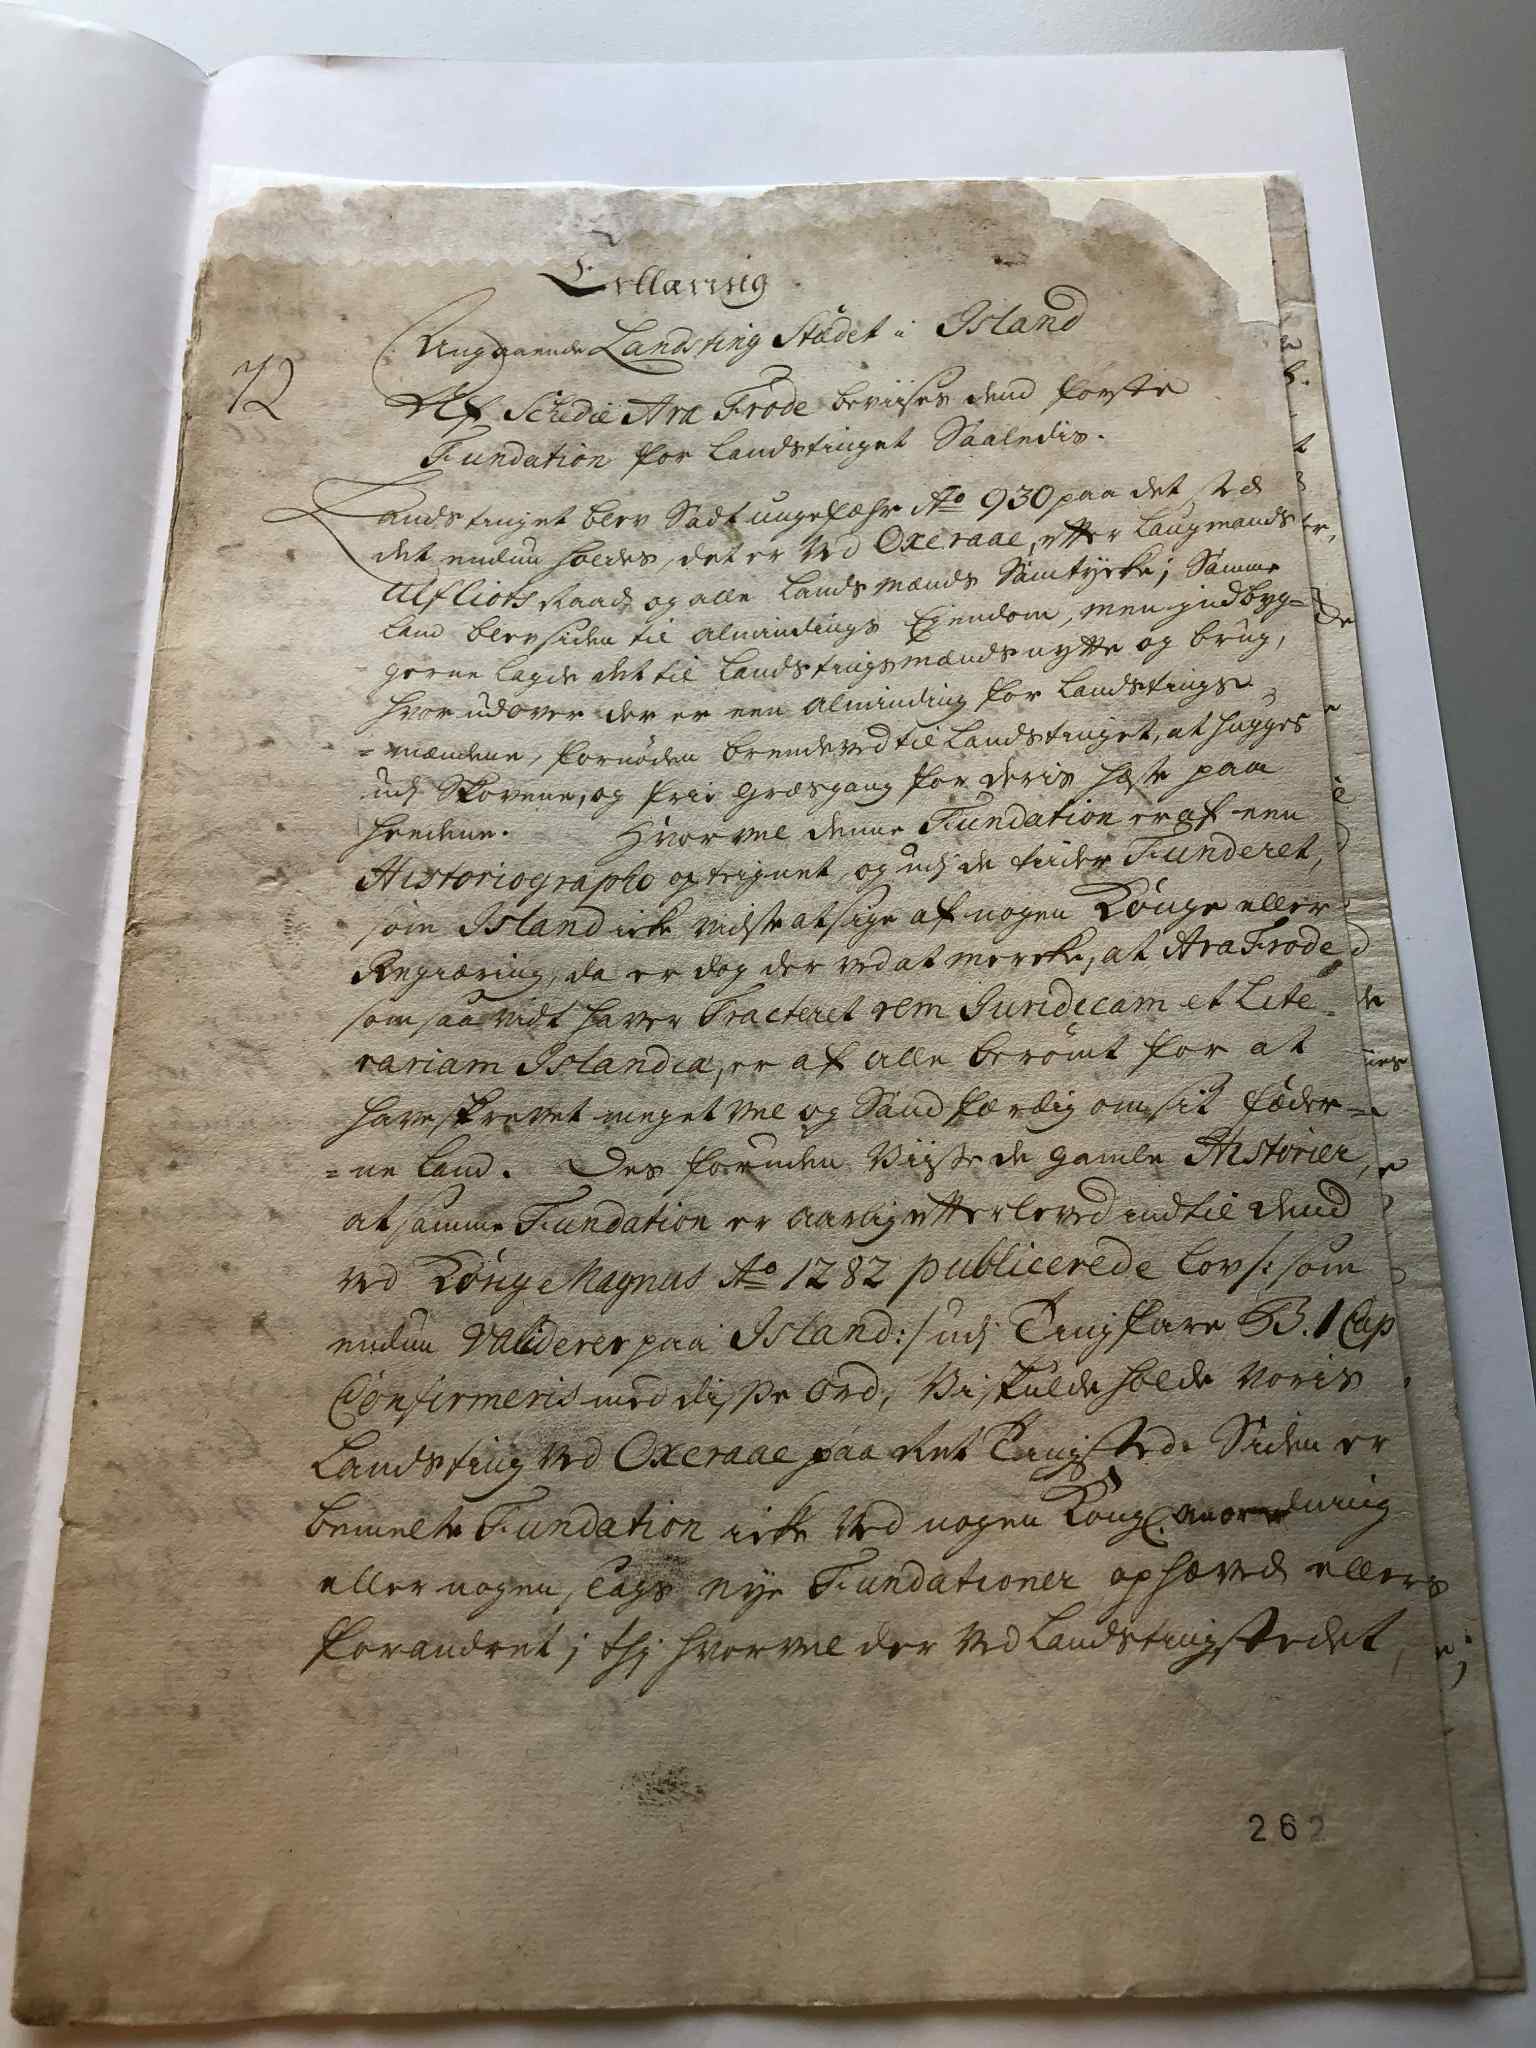 Erklæring
Angaaende Landsting Stædet i Island
72
Af Schedis Ara Frode beviises dend første
Fundation for Landstinget Saaledis.
Landstinget blev Sadt ungefæhr Ao 930 paa det sted
det endnu holdes, det er Ved Oxeraae, etter Laugmands
Ulfliots Raad, og alle Lands mænds Samtycke; Samme
Land blev siden til almindings Eÿendom, men indbyg=
gerne lagde det til Landstingsmænds nytte og brug,
hvorudover der er een alminding for Landstings
=mændene, fornøden brendeved til Landstinget, at hugges
udj Skovene, og frie græsgang for deris hæste paa
heedene. Hvorvel denne Fundation er af een
Historiographo opteignet, og udj de tiider Funderet,
som Island icke vidste at sige af nogen Konge eller
Regiæring, da er dog der ved at mercke, at Ara Frode
som saa vidt haver Tracteret rem Juridicam et Lite=
rariam Islandiæ, er af alle berømt for at
have skrevet meget vel og Sandfærdig om sit føder=
=ne land. Des foruden Viiste de gamle Historier,
at samme Fundation er aarlig etterleved indtil dend
ved Konge Magnus Ao 1282 publicerede Lov /: som
endnu Validerer paa Island :/ udj Tingfare B. 1 Cap
Confirmeris med disse ord, Vi skulde holde voris
Landsting ved Oxeraae paa ret Tingsted. Siden er
bemelte Fundation icke Ved nogen Kongl. anordning
eller nogen slags nye Fundationer ophæved ellers
forandret; thj hvorvel der Ved Landstingstedet,
262